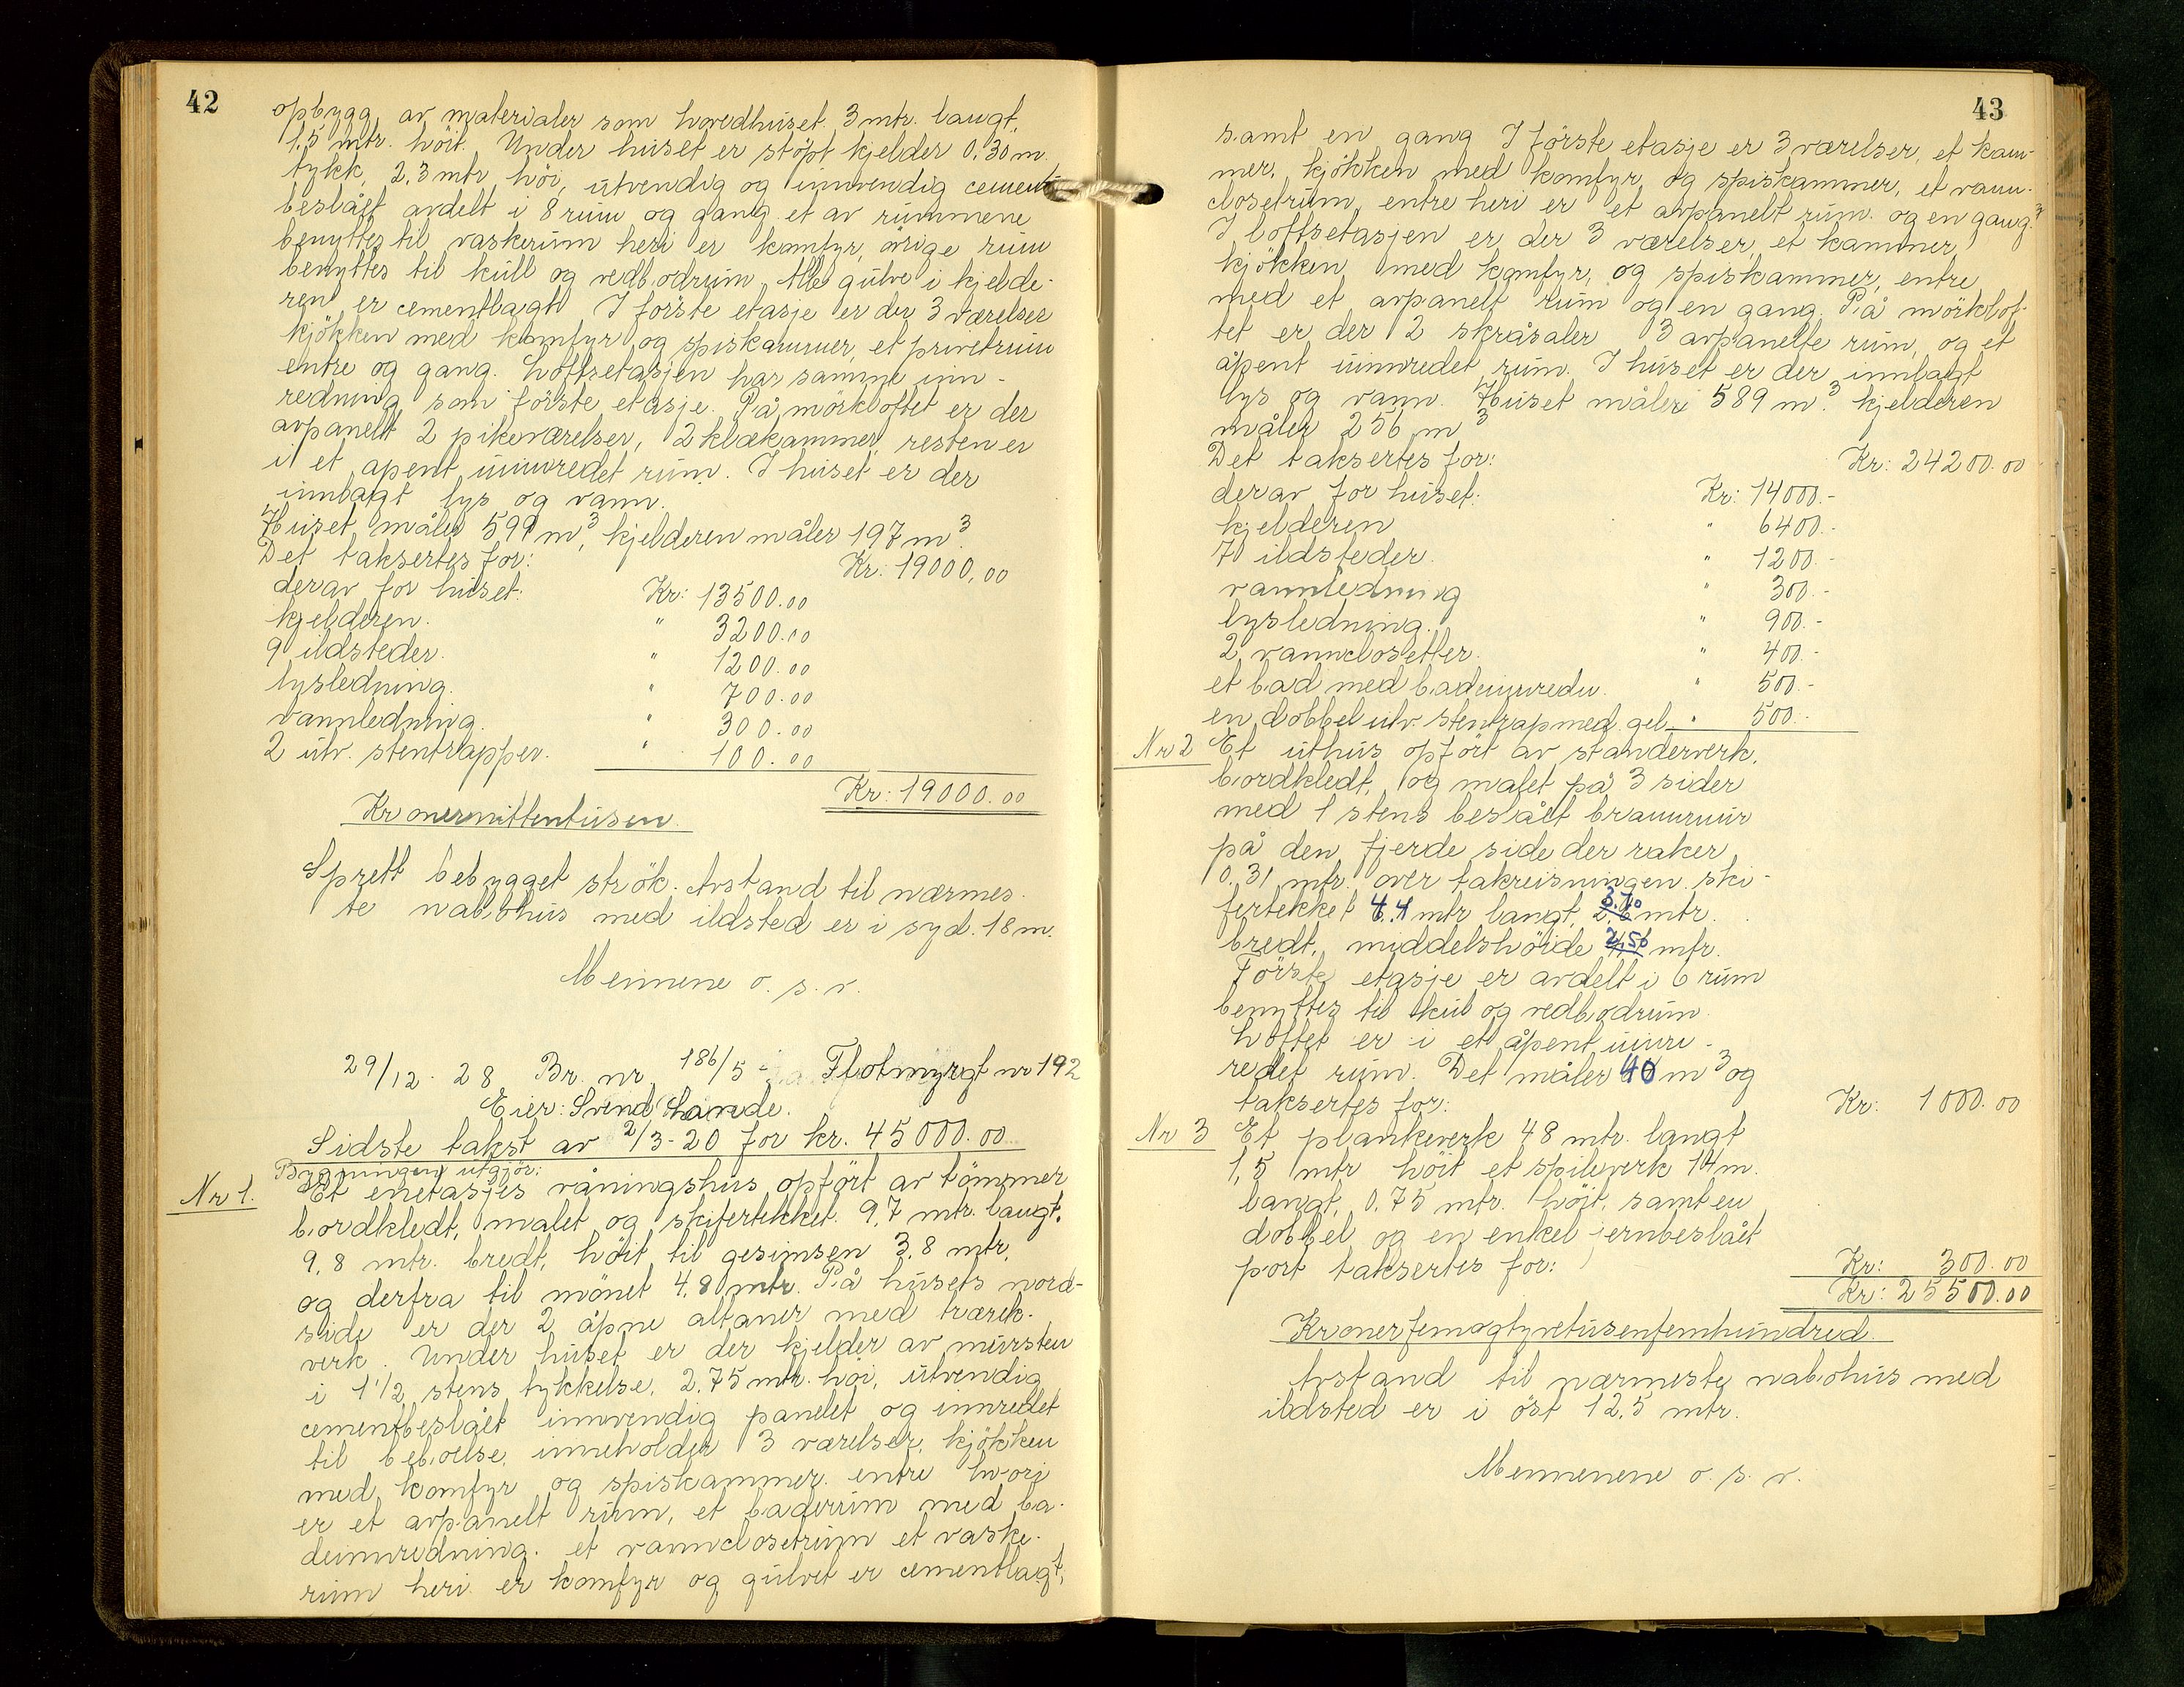 42
opbygg. av materialer som hovedhuset. 3 mtr. langt,
1,5 mtr. höit. Under huset er stöpt kjelder 0,30 m.
tykk, 2,3 mtr höi, utvendig og innvendig cement
beslått avdelt i 8 rum og gang. et av rummene
benyttes til vaskerum heri er komfyr, övrige rum
benyttes til kull og vedbodrum. Alle gulve i kjelde-
ren er cementlagt. I förste etasje er der 3 værelser
kjökken med komfyr og spiskammer, et privetrum
entre og gang. Loftsetasjen har samme inn-
redning som förste etasje. På mörkloftet er der
avpanelt 2 pikeværelser, 2 klækammer, resten er
i et apent uinnredet rum. I huset er der
innlagt lys og vann.
Huset måler 599 m³, kjelderen måler 197 m³.
Det taksertes for: Kr: 19000,00
derav for huset: Kr: 13500.00
kjelderen. " 3200.00
9 ildsteder. " 1200.00
lysledning. " 700.00
vannledning. " 300.00
2 utv. stentrapper. " 100.00
Kr: 19000.00
Kronernittentusen.
Sprett bebygget strök. Avstand til nærmes-
te nabohus med ildsted er i syd. 18 m.
Mennene o. s. v.
29/12 - 28 Br. nr. 186/5 - Flotmyrgt nr 192
Eier: Svend Lande.
Sidste takst av 2/3-20 for kr. 45000.00
Bygningen utgjör:
Nr 1. Et enetasjes våningshus opfört av tömmer
bordkledt, malet og skifertekket. 9,7 mtr. langt.
9,8 mtr. bredt, höit til gesimsen 3,8 mtr,
og derfra til mönet 4,80 mtr. På husets nord-
side er der 2 åpne altaner med trærek-
verk. Under huset er der kjelder av mursten
i 1 1/2 stens tykkelse, 2,75 mtr. höi, utvendig
cementbeslått innvendig panelet og innredet
til beboelse, inneholder 3 værelser, kjökken
med komfyr og spiskammer. entre hvori
er et avpanelt rum, et baderum med ba-
deinnredning. et vannclosetrum et vaske-
rum heri er komfyr og gulvet er cementlagt,
43
samt en gang I förste etasje er 3 værelser, et kam-
mer, kjökken med komfyr og spiskammer, et vann-
closetrum, entre heri er et avpanelt rum. og en gang.
I loftsetasjen er der 3 værelser, et kammer,
kjökken med komfyr, og spiskammer, entre
med et avpanelt rum og en gang. På mörklof-
tet er der 2 skråsaler 3 avpanelte rum, og et
åpent uinnredet rum. I huset er der innlagt
lys og vann. Huset måler 589 m³. kjelderen
måler 256 m³
Det taksertes for: Kr: 24200.00
derav for huset: Kr: 14000.-
kjelderen " 6400.-
70 ildsteder. " 1200.-
vannledning " 300.-
lysledning. " 900.-
2 vannclosetter. " 400.-
et bad med badeinnredn. " 500.-
en dobbel utv. stentrap med gel. " 500.-
Nr 2 Et uthus opfört av standerverk,
bordkledt, og malet på 3 sider
med 1 stens beslått brannmur
på den fjerde side der raker
0.31 mtr. over takreisningen. ski-
fertekket 4.4 mtr langt, 3.70 mtr.
bredt, middelshöide 2,56 mtr.
Förste etasje er avdelt i 6 rum
benyttes til kul og vedbodrum.
Loftet er i et åpent uinn-
redet rum. Det måler 40 m³ og
taksertes for: Kr: 1000.00
Nr 3 Et plankeverk 48 mtr. langt
1,5 mtr höit et spileverk 14 m.
langt, 0,75 mtr. höit, samt en
dobbel og en enkel jernbeslått
port taksertes for: Kr: 300.00
Kr: 25500.00
Kronerfemogtyvetusenfemhundred.
Avstand til nærmeste nabohus med
ildsted er i öst 12,5 mtr.
Mennenene o. s. v.